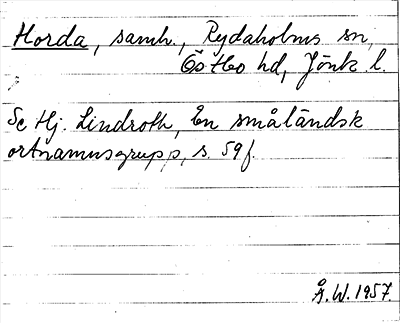 Horda, samh., Rydaholms sn,
Östbo hd, Jönk. l.
Se Hj. Lindroth, En småländsk
ortnamnsgrupp, s. 59f.
Å.W. 1957.